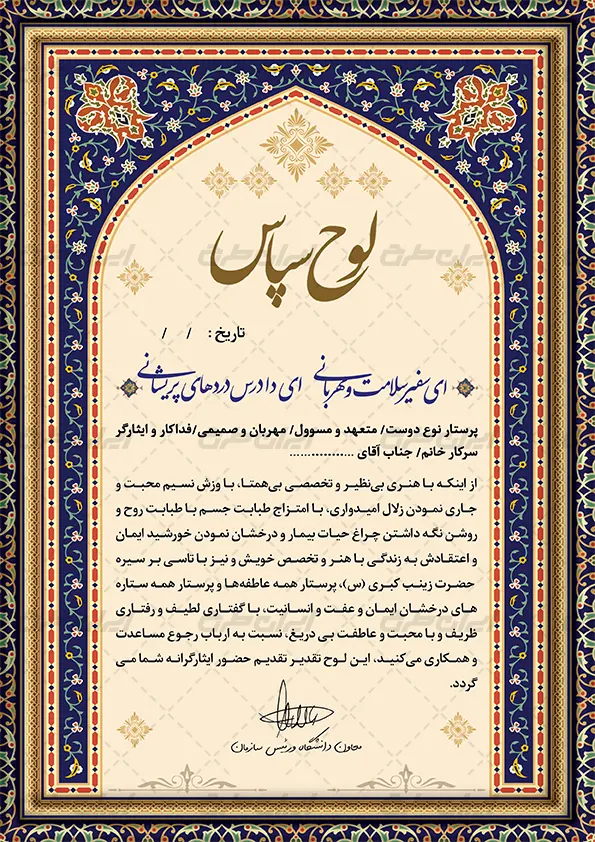 لوح سپاس
تاریخ : / /
ای سفیر سلامت و مهربانی ای دادرس دردهای پریشانی
پرستار نوع دوست/ متعهد و مسوول/ مهربان و صمیمی/فداکار و ایثارگر
سرکار خانم/ جناب آقای ..................
از اینکه با هنری بی‌نظیر و تخصصی بی‌همتا، با وزش نسیم محبت و
جاری نمودن زلال امیدواری، با امتزاج طبابت جسم با طبابت روح و
روشن نگه داشتن چراغ حیات بیمار و درخشان نمودن خورشید ایمان
و اعتقادش به زندگی با هنر و تخصص خویش و نیز با تاسی بر سیره
حضرت زینب کبری (س)، پرستار همه عاطفه‌ها و پرستار همه ستاره
های درخشان ایمان و عفت و انسانیت، با گفتاری لطیف و رفتاری
ظریف و با محبت و عاطفت بی دریغ، نسبت به ارباب رجوع مساعدت
و همکاری می‌کنید، این لوح تقدیر تقدیم حضور ایثارگرانه شما می
گردد.
معاون دانشگاه و رئیس سازمان
ایران طرح